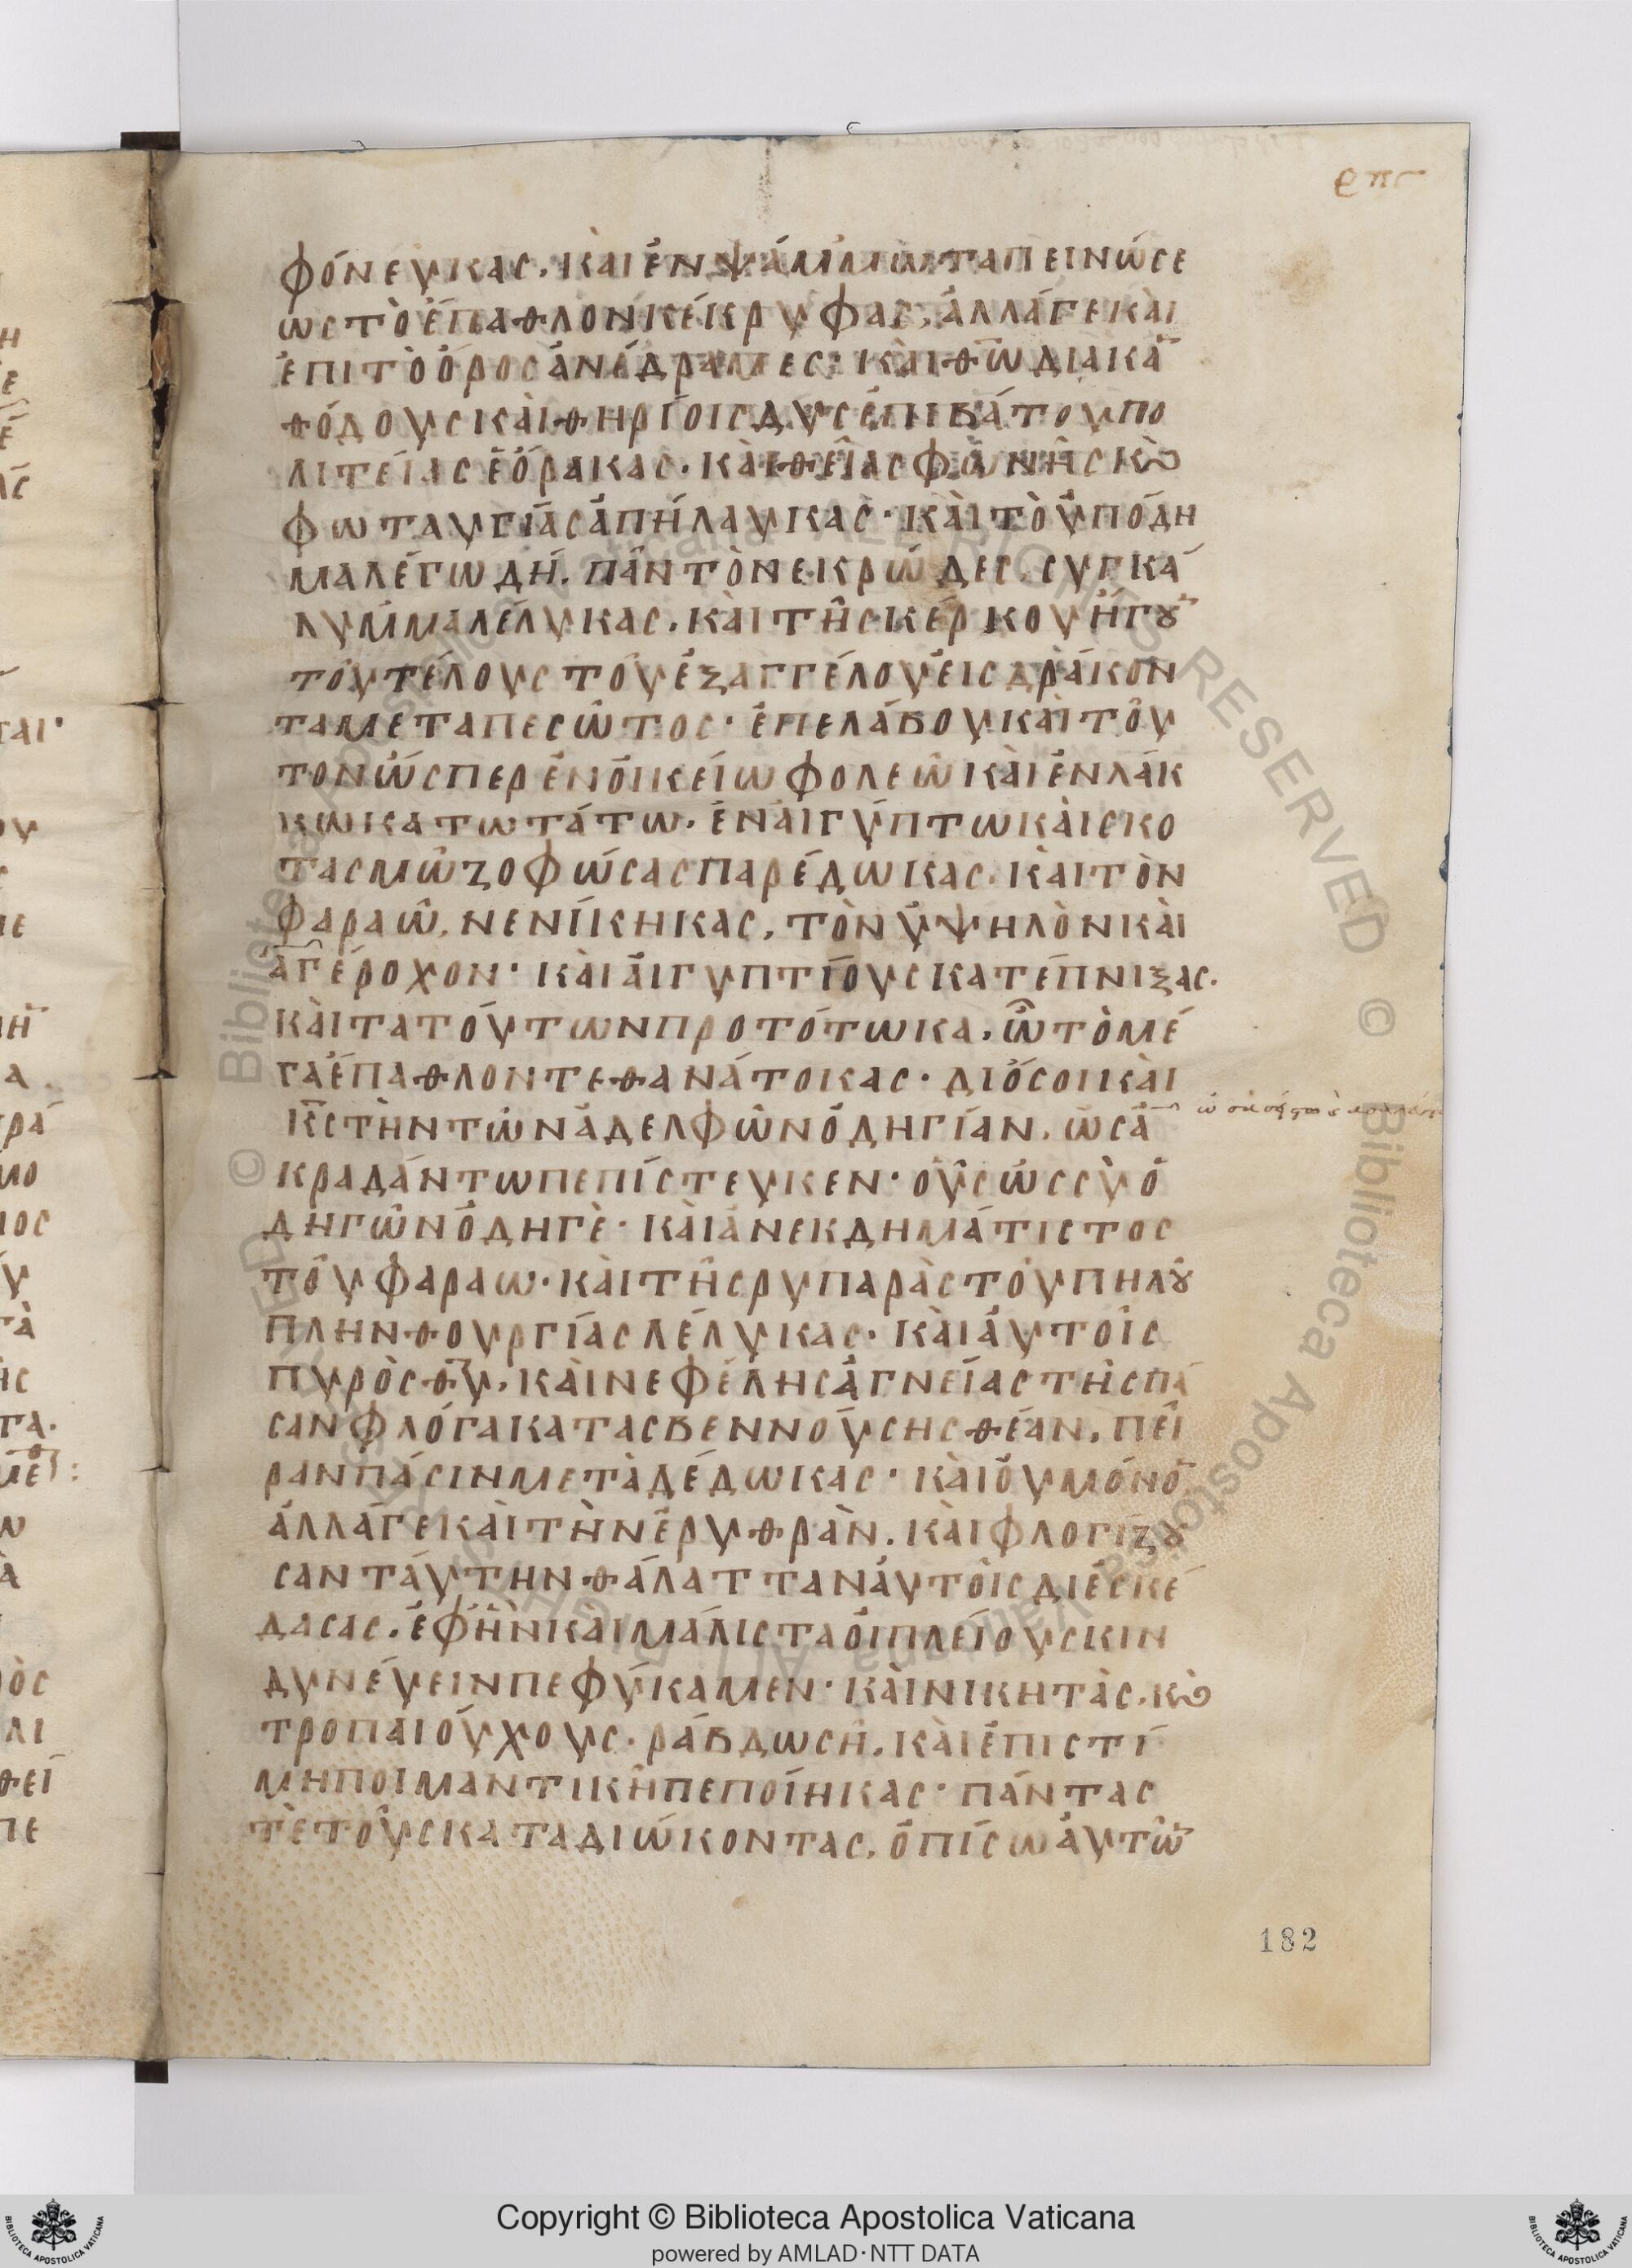 ρπϛ
φόνευκας. καὶ ἐν ψάμμω ταπεινώσε
ως τὸ ἔπαθλον κέκρυφας, ἀλλάγε καὶ
ἐπὶ τὸ ὄρος ἀνέδραμες· καὶ θω διακα
θόδους καὶ θηρίοις δυσεπιβάτου πο
λιτείας ἑόρακας. καὶ θείας φωνῆς κ
φωταυγίας ἀπήλαυκας· καὶ τὸ ὑπόδη
μα λέγω δή. πᾶν τὸ νεκρῶδες, συγκά
λυμμα λέλυκας. καὶ τῆς κέρκου ἤγου
τοῦ τέλους τοῦ ἐξαγγέλου εἰς δράκον
τα μεταπεσῶτος· ἐπελάβου καὶ τοῦ
τον ὥσπερ ἐν οἰκείω φολεῶ καὶ ἐν λάκ
κω κατωτάτω. ἐν αἰγύπτω καὶ σκο
τασμῶ ζοφώσας παρέδωκας. καὶ τὸν
φαραῶ, νενίκηκας, τὸν ὑψηλὸν καὶ
ἀγέροχον· καὶ αἰγυπτίους κατέπνιξας.
καὶ τὰ τούτων προτότωκα, ὦ τὸ μέ
γα ἔπαθλον τεθανάτοκας· διό σοι καὶ
κς τὴν τῶν ἀδελφῶν ὁδηγίαν, ὡς ἀ
κραδάντω πεπίστευκεν· οὓς ὡς σὺ ὁ
δηγῶν ὁδηγὲ· καὶ ἀνεκδημάτιστος
τοῦ φαραω· καὶ τῆς ρυπαρὰς τοῦ πηλοῦ
πλινθουργίας λέλυκας· καὶ αὐτοῖς
πυρὸς θυ, καὶ νεφέλης ἁγνείας τῆς πᾶ
σαν φλόγα κατασβεννούσης θέαν, πεῖ
ραν πάσιν μετὰ δέδωκας· καὶ οὐ μόνο
ἀλλάγε καὶ τὴν ἐρυθρὰν. καὶ φλογίζου
σαν ταύτην θάλατταν αὐτοῖς διεσκέ
δασας. ἐφ ἣν καὶ μάλιστα οἱ πλείους κιν
δυνεύειν πεφύκαμεν· καὶ νικητὰς, κ
τροπαιούχους. ράβδω σῆ, καὶ ἐπιστί
μη ποιμαντικῆ πεποίηκας· πάντας
τὲ τοὺς καταδιώκοντας, ὀπίσω αὐτῶ
182
Copyright © Biblioteca Apostolica Vaticana
powered by AMLAD·NTT DATA